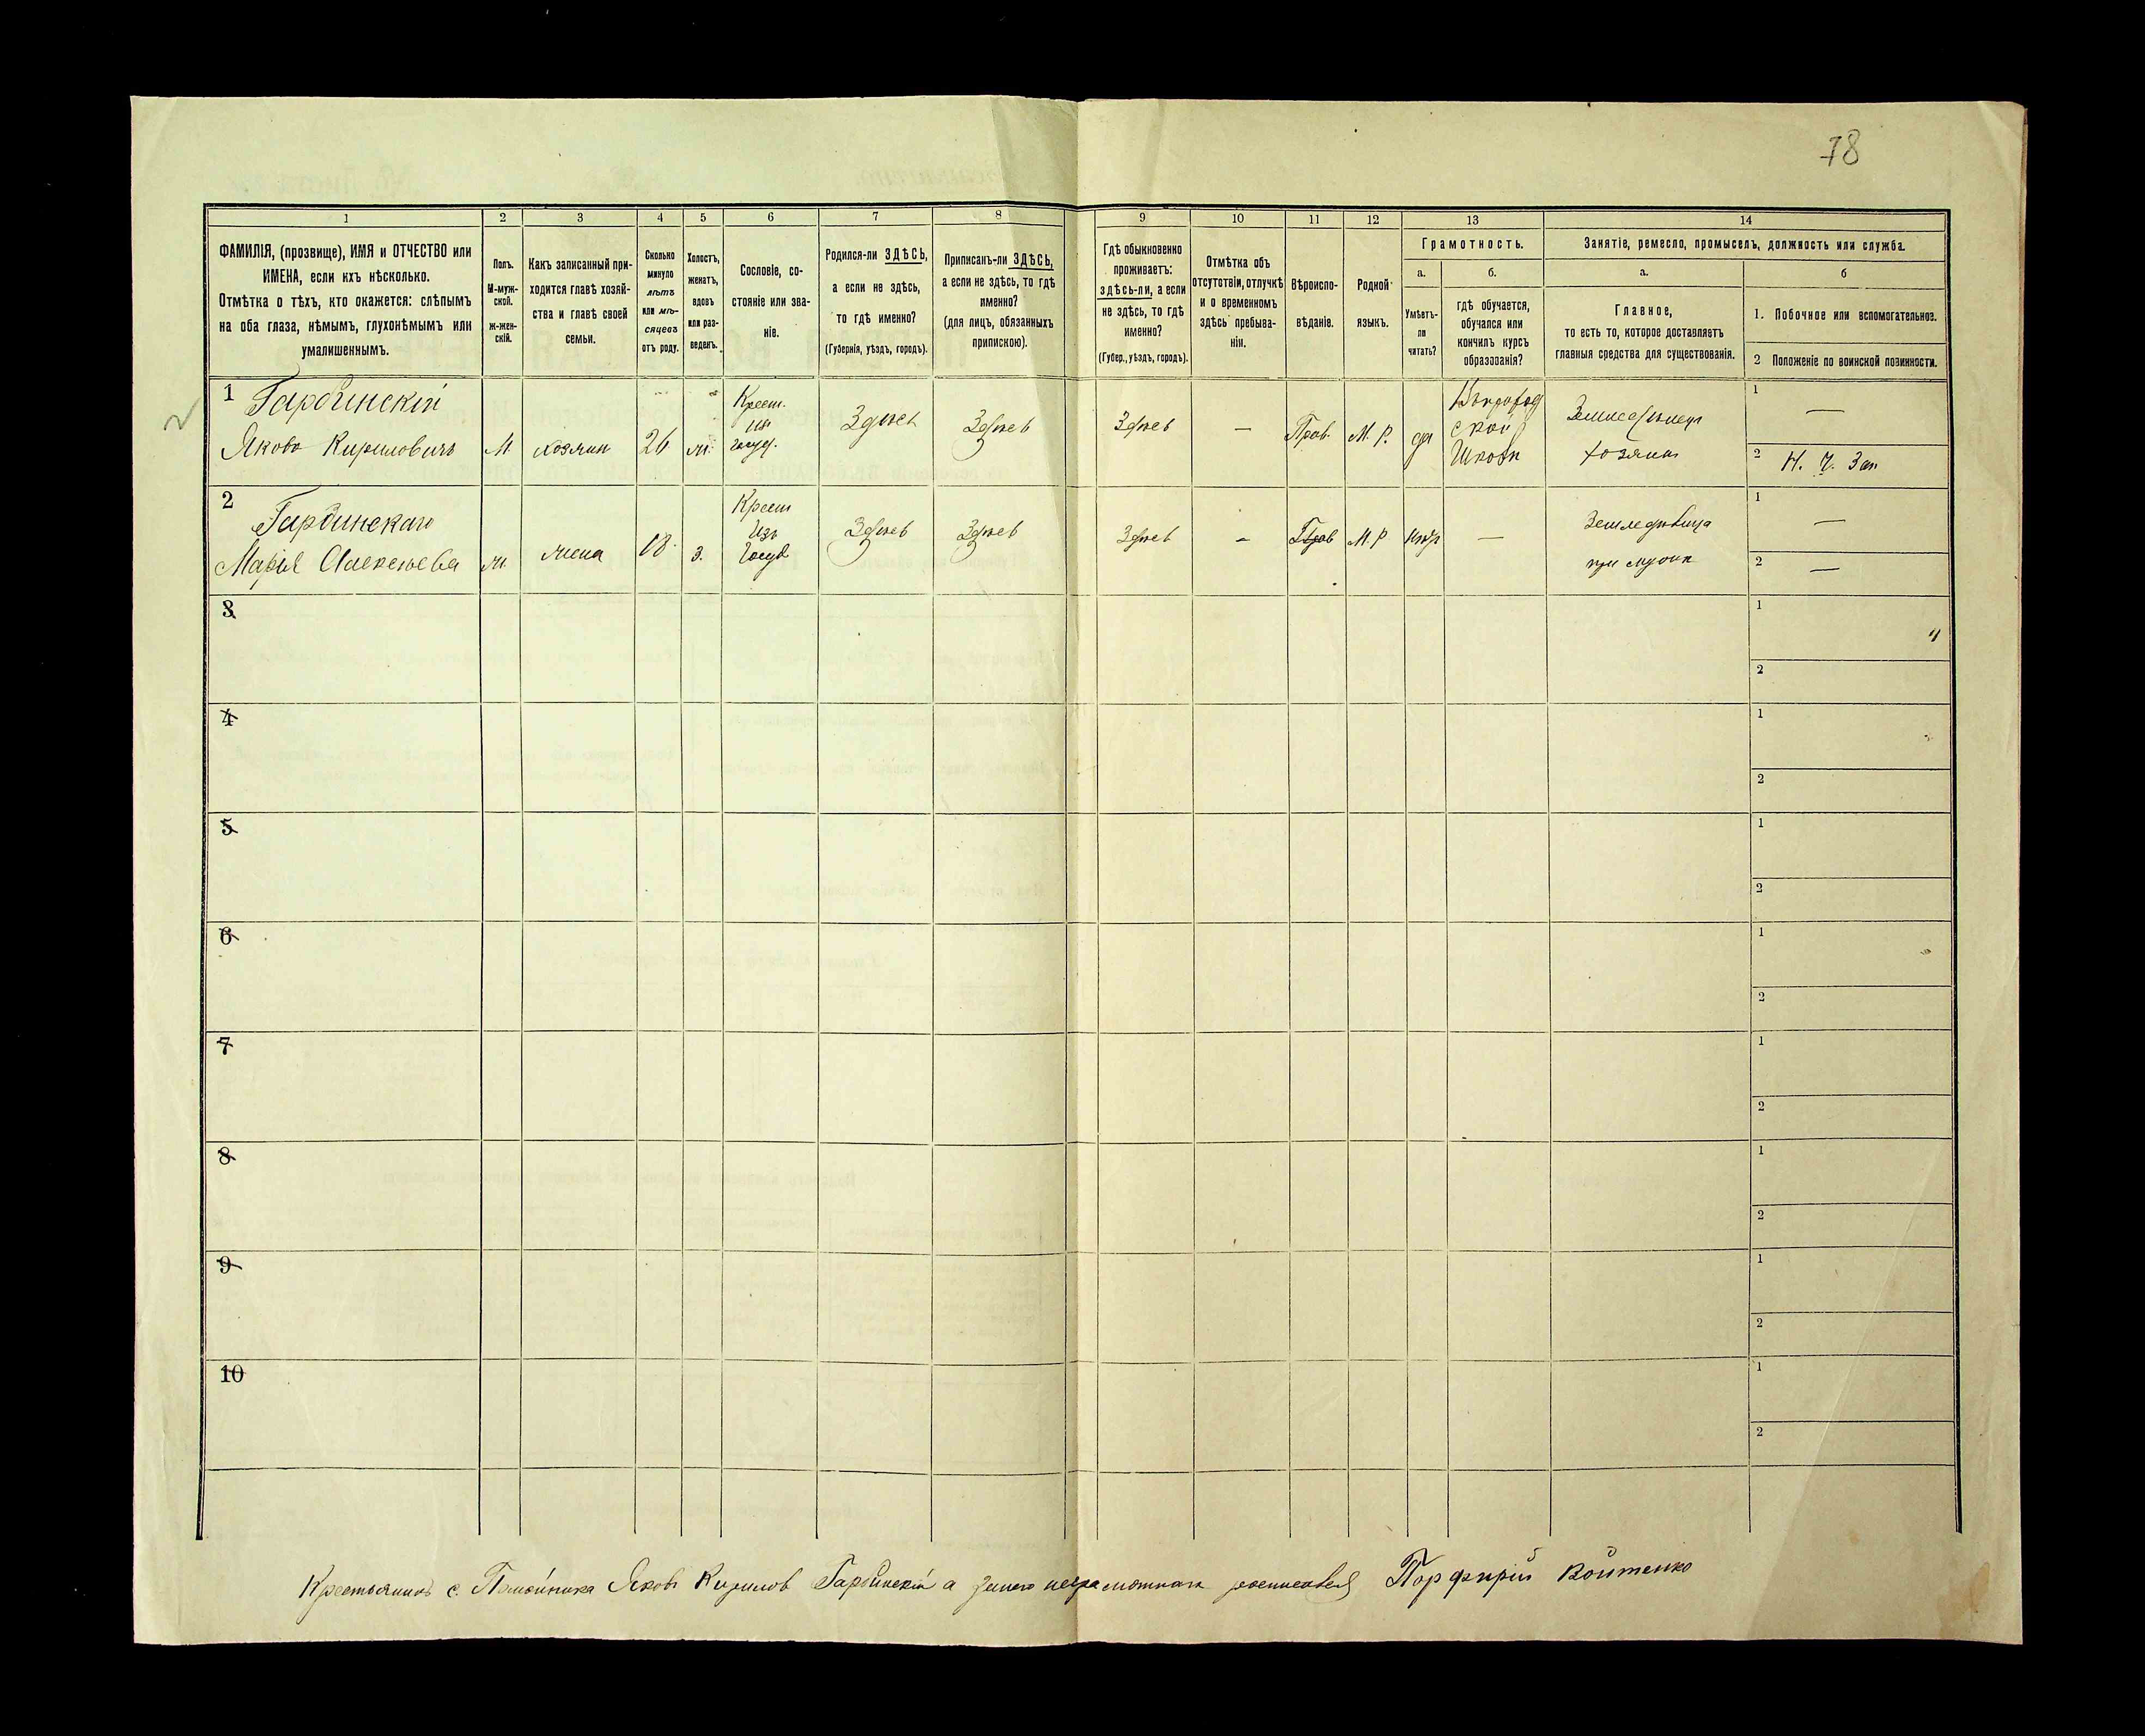 78
1 2 3 4 5 6 7 8 9 10 11 12 13 14
ФАМИЛІЯ, (прозвище), ИМЯ и ОТЧЕСТВО или
ИМЕНА, если ихъ нѣсколько.
Отмѣтка о тѣхъ, кто окажется: слѣпымъ
на оба глаза, нѣмымъ, глухонѣмымъ или
умалишеннымъ.
Полъ.
М-муж-
ской.
ж-жен-
скій.
Какъ записанный при-
ходится главѣ хозяй-
ства и главѣ своей
семьи.
Сколько
минуло
лѣтъ
или мѣ-
сяцевъ
отъ роду.
Холостъ,
женатъ,
вдовъ
или раз-
веденъ.
Сословіе, со-
стояніе или зва-
ніе.
Родился-ли ЗДѢСЬ,
а если не здѣсь,
то гдѣ именно?
(Губернія, уѣздъ, городъ).
Приписанъ-ли ЗДѢСЬ,
а если не здѣсь, то гдѣ
именно?
(для лицъ, обязанныхъ
припискою).
Гдѣ обыкновенно
проживаетъ:
здѣсь-ли, а если
не здѣсь, то гдѣ
именно?
(Губер., уѣздъ, городъ).
Отмѣтка объ
отсутствіи, отлучкѣ
и о временномъ
здѣсь пребыва-
ніи.
Вѣроиспо-
вѣданіе.
Родной
языкъ.
Грамотность.
а.
Умѣетъ-
ли
читать?
б.
гдѣ обучается,
обучался или
кончилъ курсъ
образованія?
Занятіе, ремесло, промыселъ, должность или служба.
а.
Главное,
то есть то, которое доставляетъ
главныя средства для существованія.
б
1. Побочное или вспомогательное.
2 Положеніе по воинской повинности.
1 Гарбинскій
Яковъ Кириловичъ
М.
хозяин
26
Крест.
Здѣсь
Здѣсь
Здѣсь
—
Прав.
М. Р.
да
ской
Школѣ
хозяинъ
1 —
2 Н. Ч. Зап
2 Гарбинскаго
Марія Алексѣева
жена
18
з.
Крест
Изъ
Госуд
Здѣсь
Здѣсь
Здѣсь
-
Прав
М. Р
нѣт
—
Земледѣлица
при мужѣ
1 —
2 —
3
1
2
4
1
2
5
1
2
6
1
2
7
1
2
8
1
2
9
1
2
10
1
2
Крестьянинъ с. Яковъ Кирилов Гарбинскій а за него неграмотнаго росписался Порфирій Войтенко